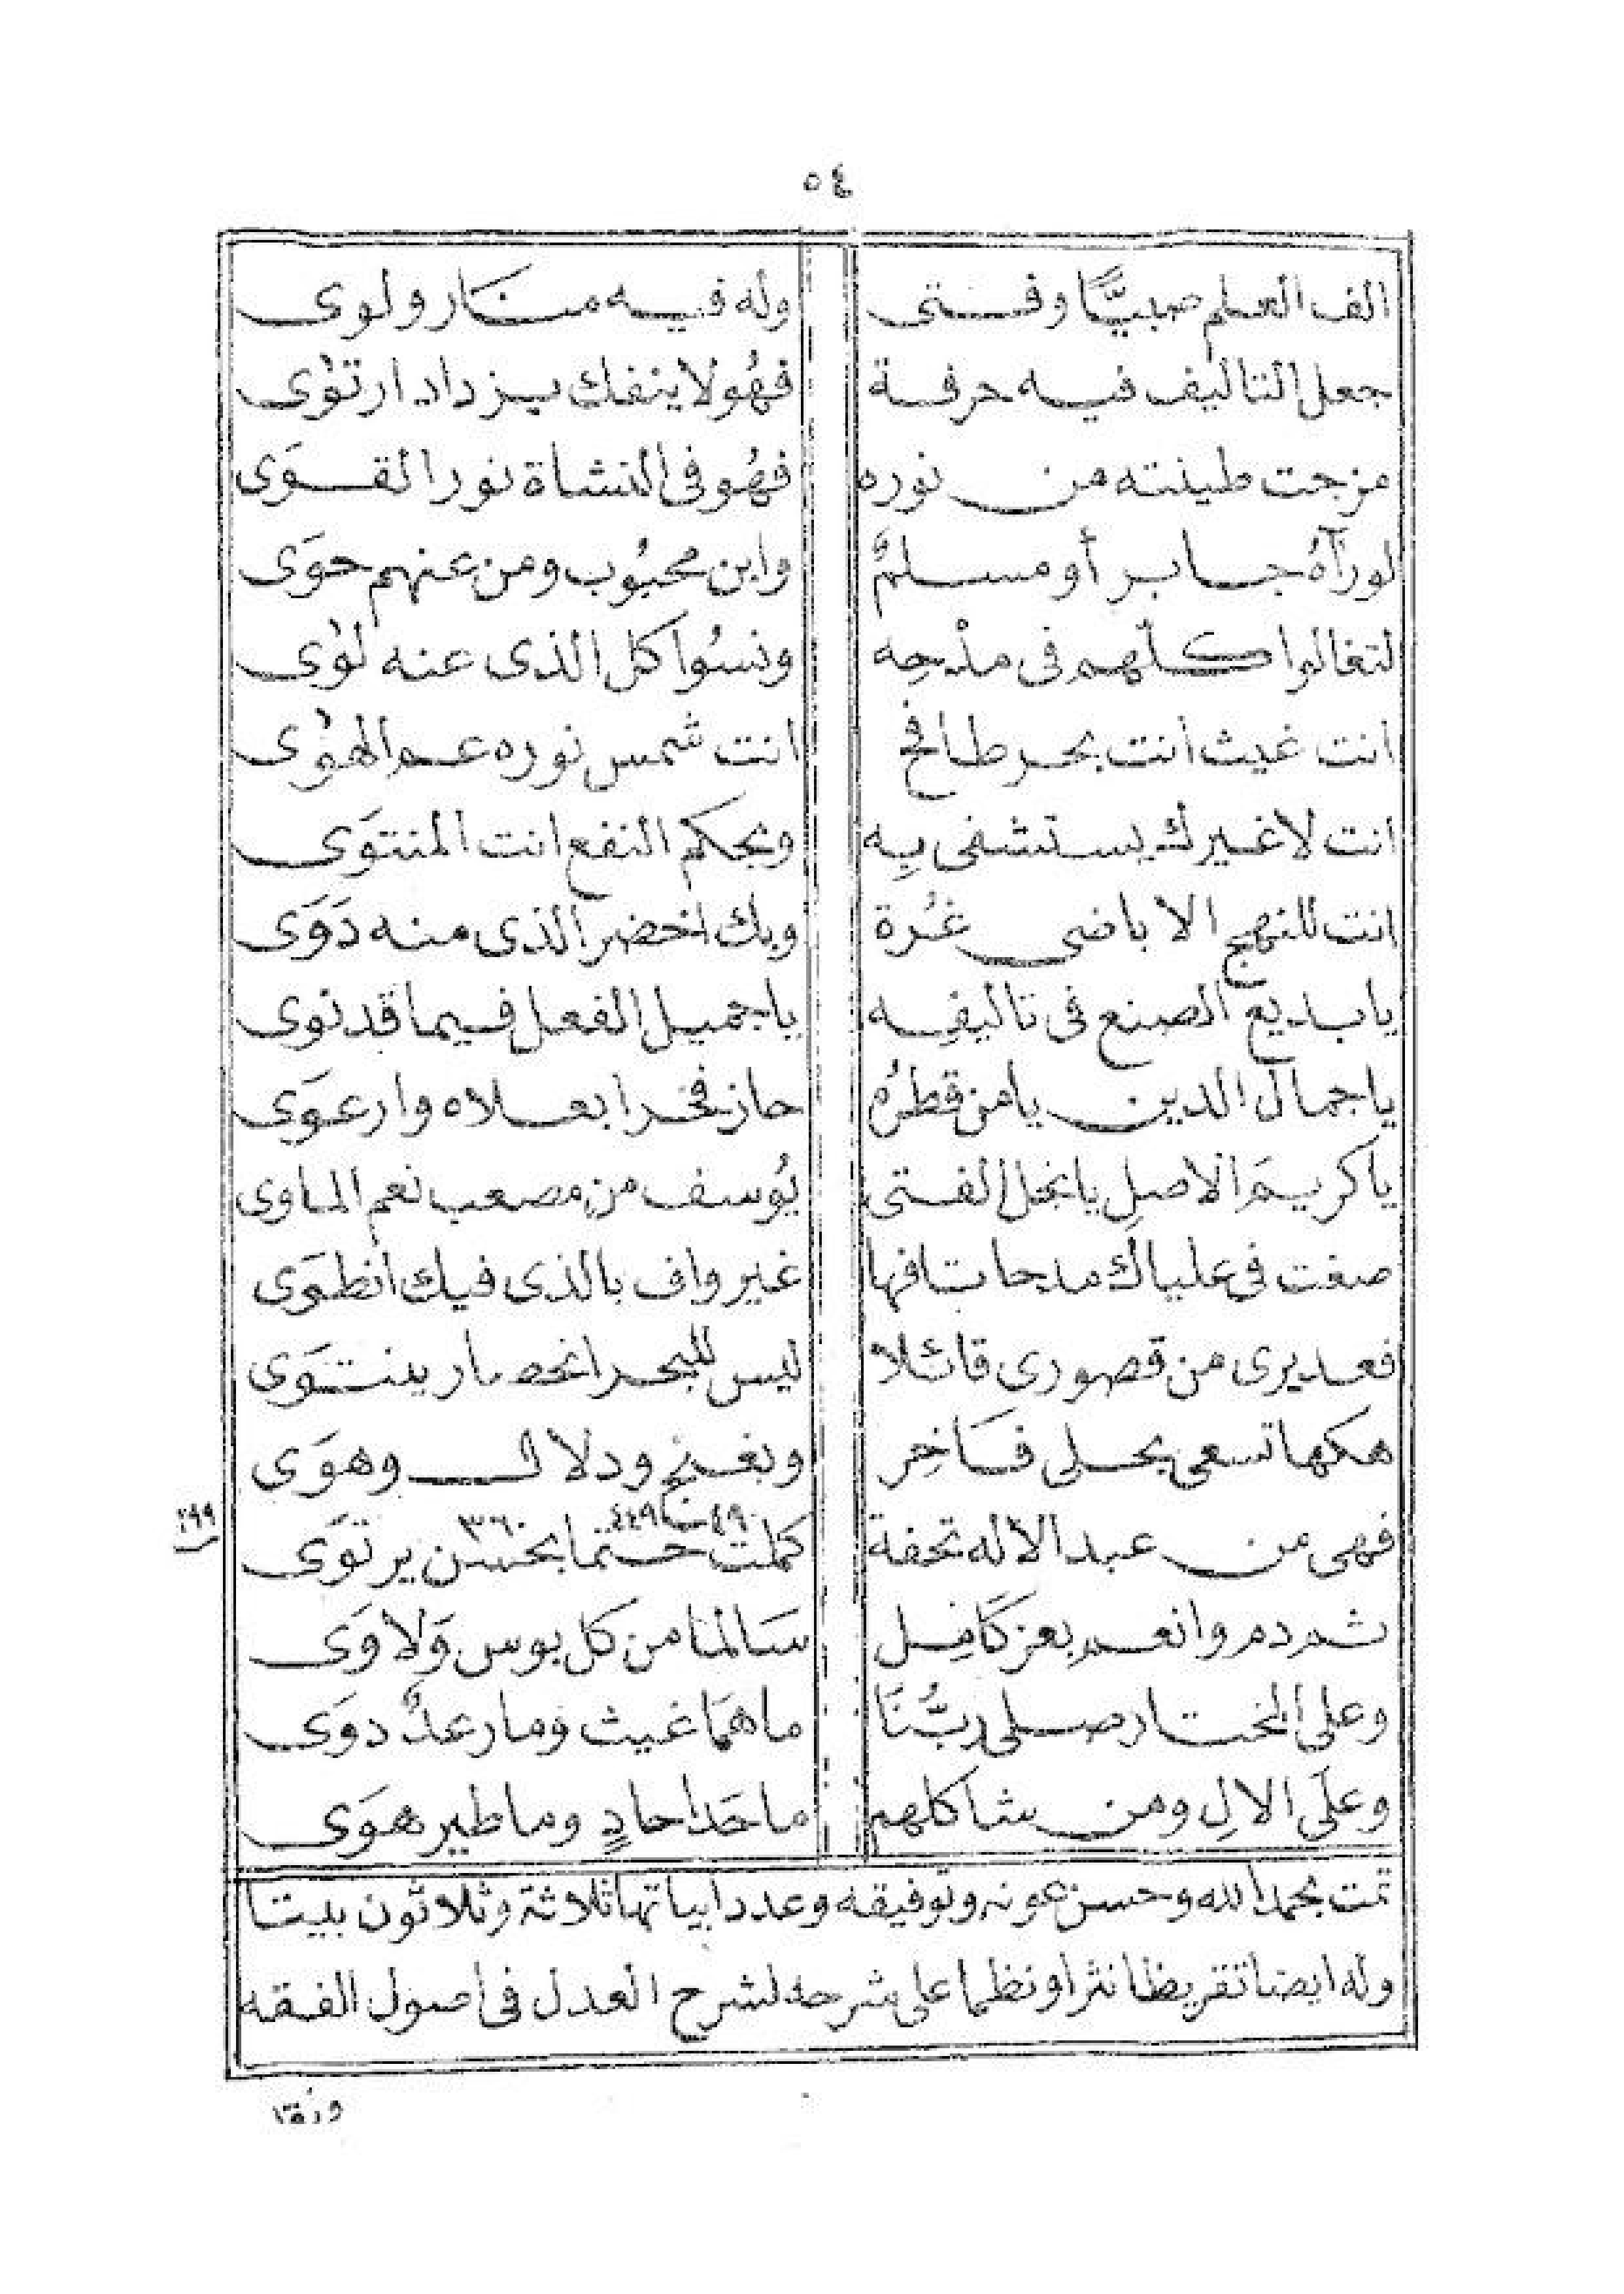 ٥٤
الف العلم صبيًّا وفتى وله فيه منار ولوى
جعل التاليف فيه حرفة فهُو لا ينفك يزداد ارتوٰى
مزجت طينته من نوره فهُو فى النشاة نور القوَى
لو رآهُ جابر أو مسلمٌ وابن محبُوب ومن عنهم حوَى
لتغالوا كلّهم فى مدْحِه ونسُوا كل الذى عنه لوٰى
انت غيث انت بحر طافح انت شمس نوره عم الهوٰى
انت لا غيرك يستشفى بِه وبحكم النفع انت المنتوَى
انت للنهج الاباضى غُرة وبك اخضر الذى منه ذَوَى
يا بديع الصنع فى تاليفِه يا جميل الفعل فيما قد نوى
يا جمال الدين يا من قطرُه حاز فخرا بعلاه وارعوَى
يا كريمَ الاصلِ يا نجل الفتى يُوسف من مصعب نعم الماوى
صغت فى علياك مدحا تافها غير واف بالذى فيك انطوَى
فعديرى من قصورى قائلا ليس للبحر انحصار ينتوَى
هكها تسعى بحلى فَاخِر وبغنج ودلال وهوَى
٤٩٠ ٤٤٩ ٣٦٠
فهى من عبد الاله تحفة كملت حتما بحسن يرتوَى
١٢٩٩
ثم دم وانعم بعز كَامِل سَالما من كل بوس وَلاوَى
وعلى المختار صلى ربُّنَا ما همَا غيث وما رعدٌ دوَى
وعلَى الالِ ومن شاكلهم ما حَدا حادٍ وما طير هوَى
تمت بحمد الله وحسن عونه وتوفيقه وعدد ابياتها ثلاثة وثلاثون بيتا
وله ايضا تقريظا نثرا ونظما على شرحه لشرح العدل فى اصول الفقه